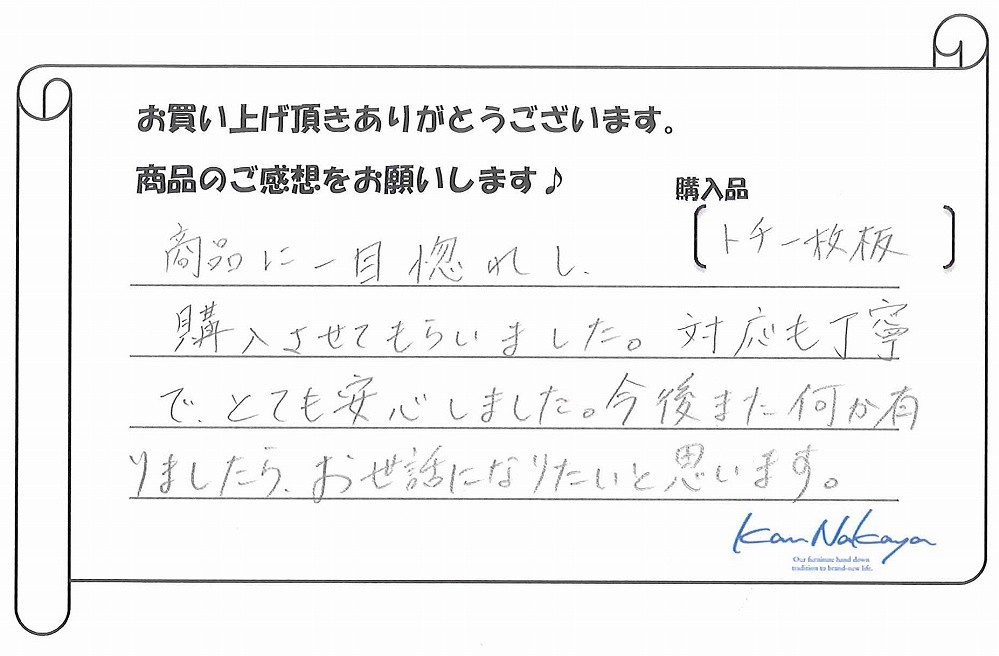 お買い上げ頂きありがとうございます。
商品のご感想をお願いします♪
購入品
トチ一枚板
商品に一目惚れし、
購入させてもらいました。対応も丁寧
で、とても安心しました。今後また何か有
りましたら、お世話になりたいと思います。
Kan Nakaya
Our furniture hand down
tradition to brand-new life.